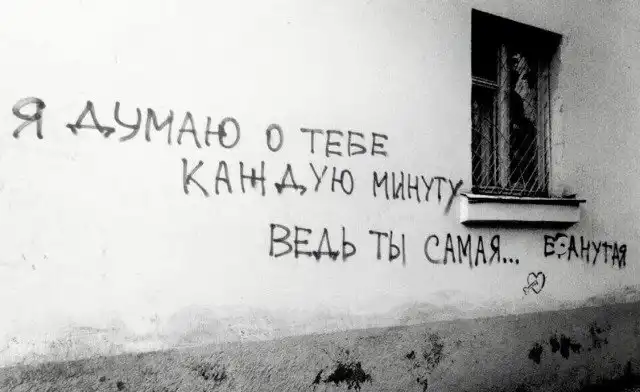 Я ДУМАЮ О ТЕБЕ
КАЖДУЮ МИНУТУ
ВЕДЬ ТЫ САМАЯ...